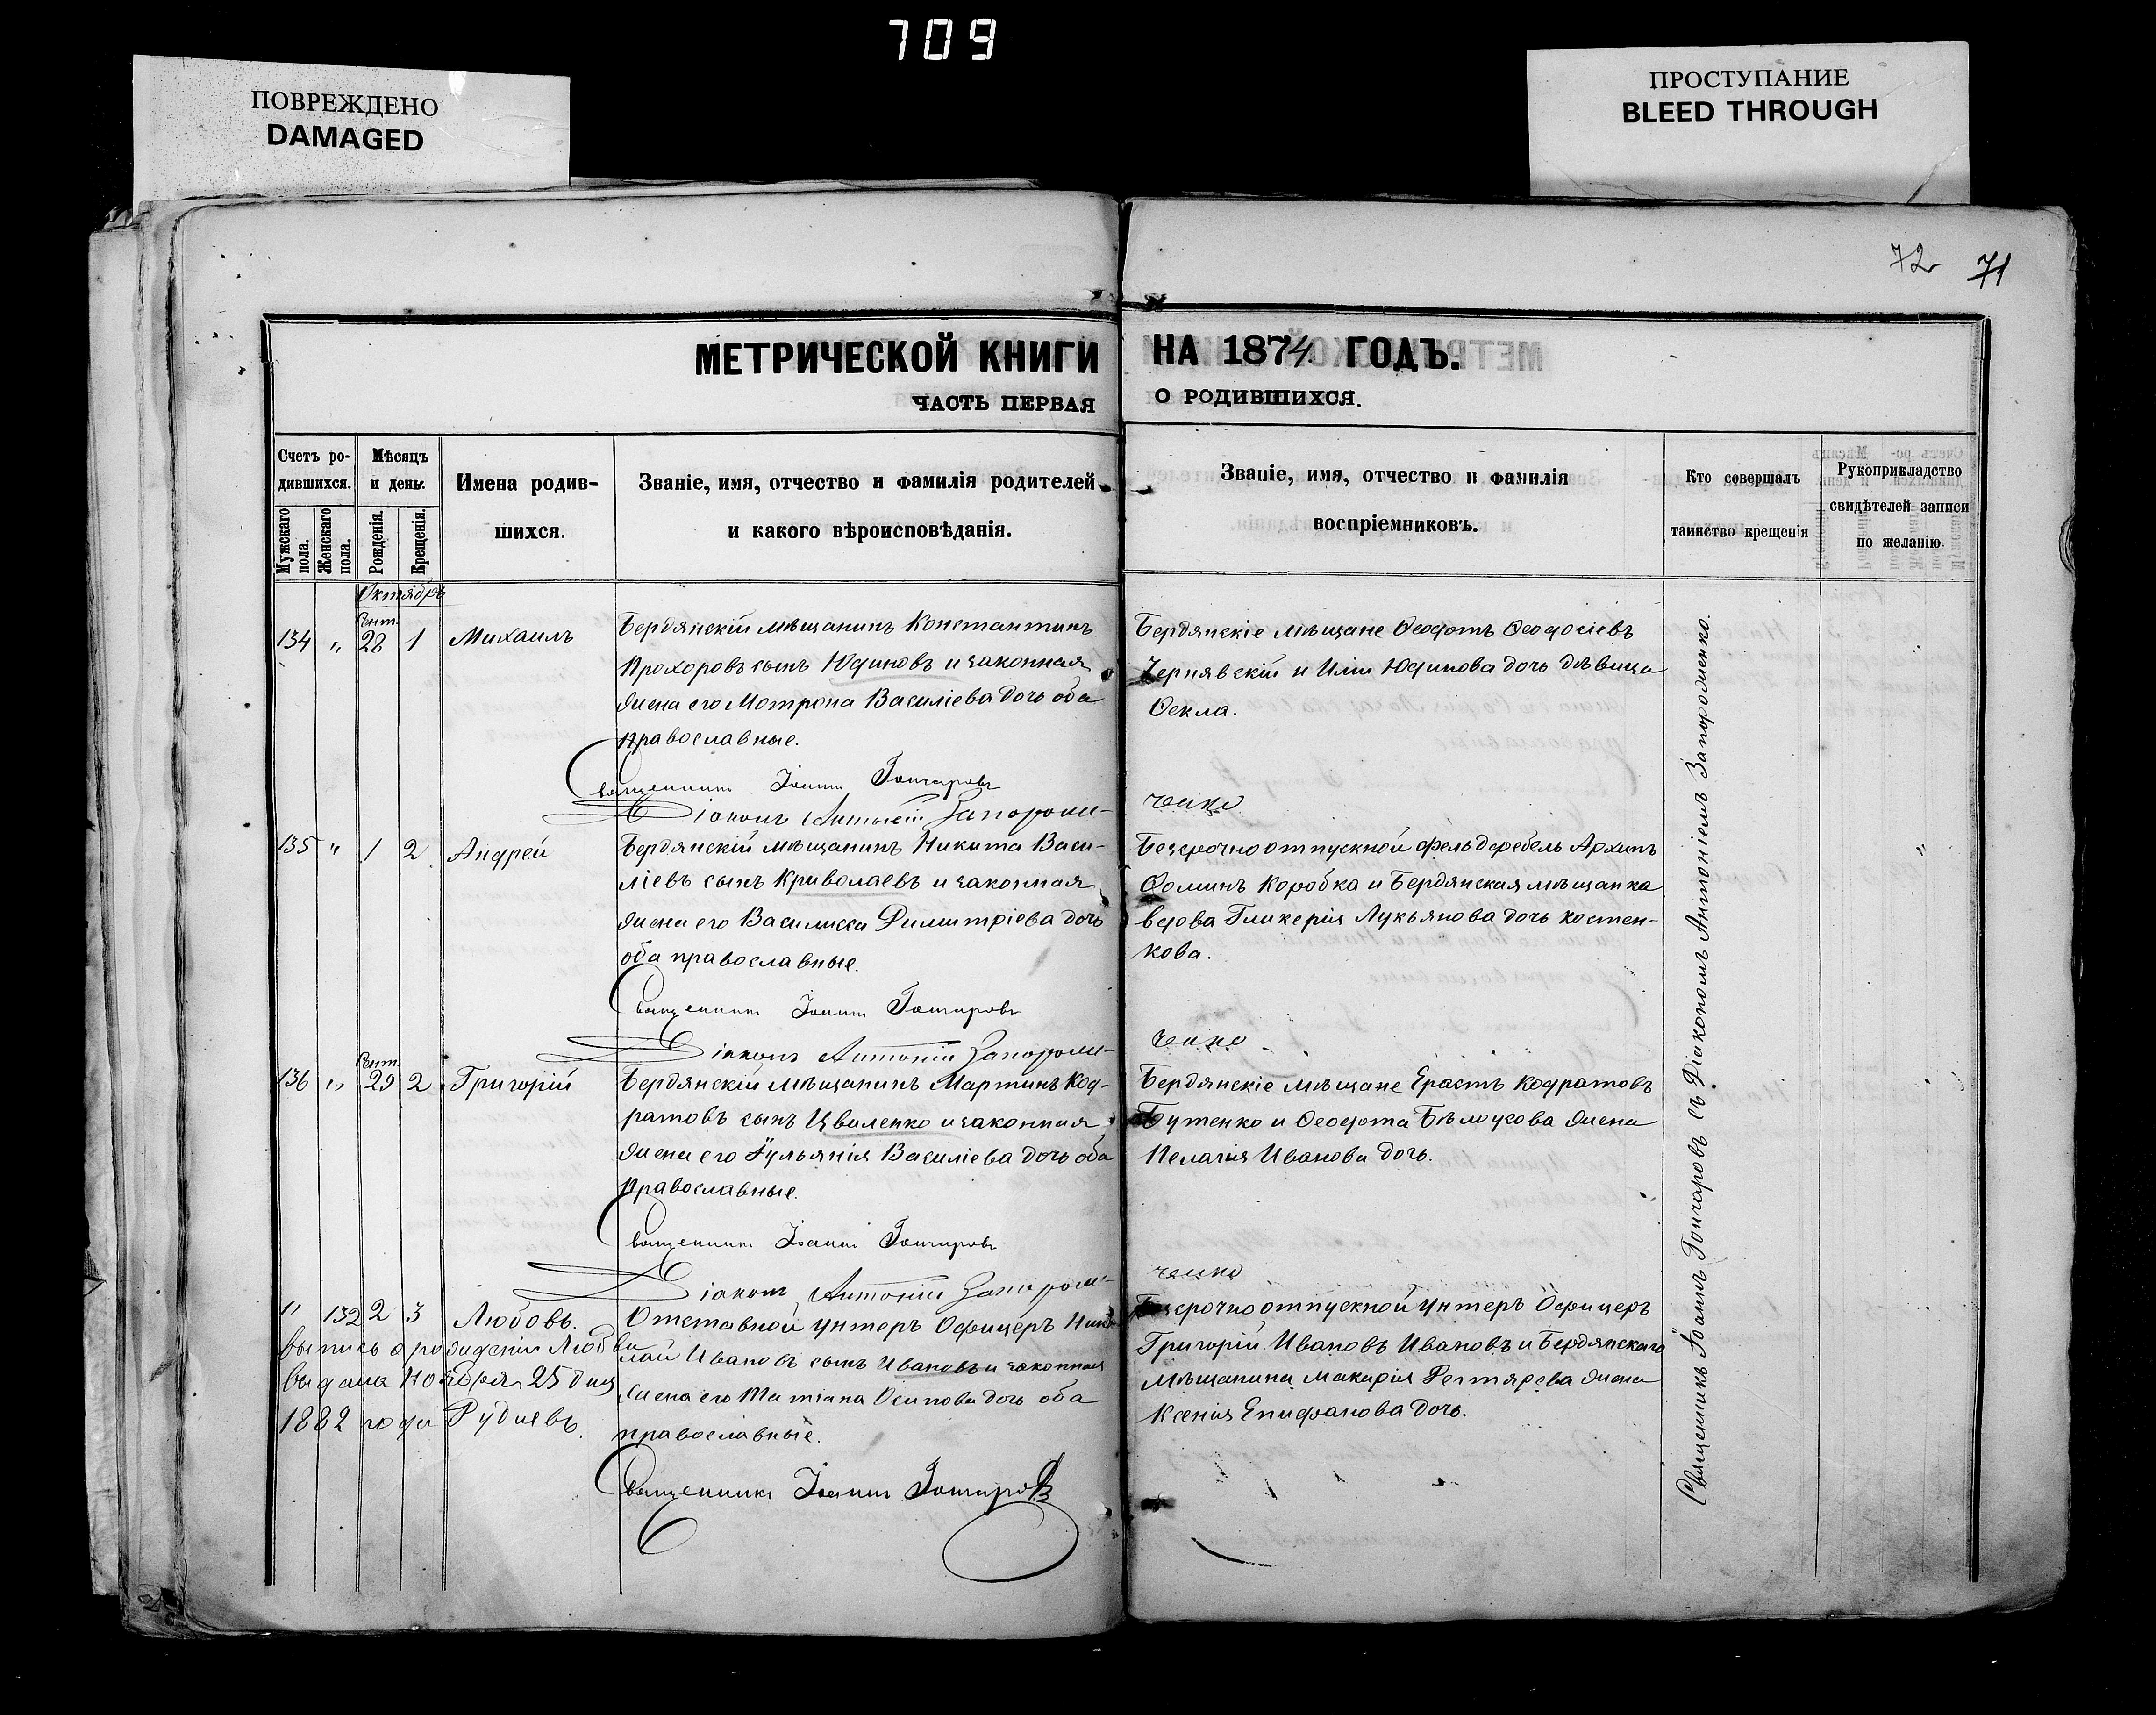 709
ПОВРЕЖДЕНО
DAMAGED
ПРОСТУПАНИЕ
BLEED THROUGH
72 71
МЕТРИЧЕСКОЙ КНИГИ НА 1874 ГОДЪ.
ЧАСТЬ ПЕРВАЯ О РОДИВШИХСЯ.
Счетъ ро-
дившихся.
Мужскаго пола.
Женскаго пола.
Мѣсяцъ
и день.
Рожденія.
Крещенія.
Имена родив-
шихся.
Званіе, имя, отчество и фамилія родителей
и какого вѣроисповѣданія.
Званіе, имя, отчество и фамилія
воспріемниковъ.
Кто совершалъ
таинство крещенія
Рукоприкладство
свидѣтелей записи
по желанію.
Октябрь
Сент.
134 " 28 1 Михаилъ
Бердянскій мѣщанинъ Константинъ
Прохоровъ сынъ Юдиновъ и законная
жена его Мотрона Василіева дочь оба
православные.
Священникъ Іоаннъ Гончаровъ
Діаконъ Антоній Запорожи-
Бердянскіе мѣщане Ѳеодотъ Ѳеодосіевъ
Чернявскій и Иліи Юдинова дочь дѣвица
Ѳекла.
ченко
135 " 1 2 Андрей
Бердянскій мѣщанинъ Никита Васи-
ліевъ сынъ Криволаевъ и законная
жена его Василисса Димитріева дочь
оба православные.
Священникъ Іоаннъ Гончаровъ
Діаконъ Антоній Запорожи-
Безсрочноотпускной фельдфебель Архипъ
Ѳоминъ Коробка и Бердянская мѣщанка
вдова Гликерія Лукьянова дочь Костен-
кова.
ченко
Сент.
136 " 29 2 Григорій
Бердянскій мѣщанинъ Мартинъ Код-
ратовъ сынъ Цваленко и законная
жена его Іульянія Василіева дочь оба
православные.
Священникъ Іоаннъ Гончаровъ
Діаконъ Антоній Запорожи-
Бердянскіе мѣщане Ерастъ Кодратовъ
Бутенко и Ѳеодота Бѣлоусова жена
Пелагія Иванова дочь.
ченко
" 132 2 3 Любовь.
Выпись о рожденіи Любви
выдана Ноября 25 дня
1882 года Рудневъ.
Отставной унтеръ Офицеръ Нико-
лай Ивановъ сынъ Ивановъ и законная
жена его Татіана Осипова дочь оба
православные.
Священникъ Іоаннъ Гончаровъ
Безсрочноотпускной унтеръ Офицеръ
Григорій Ивановъ Ивановъ и Бердянскаго
мѣщанина Макарія Дегтярева жена
Ксенія Епифанова дочь.
Священникъ Іоаннъ Гончаровъ съ Діакономъ Антоніемъ Запорожченко.